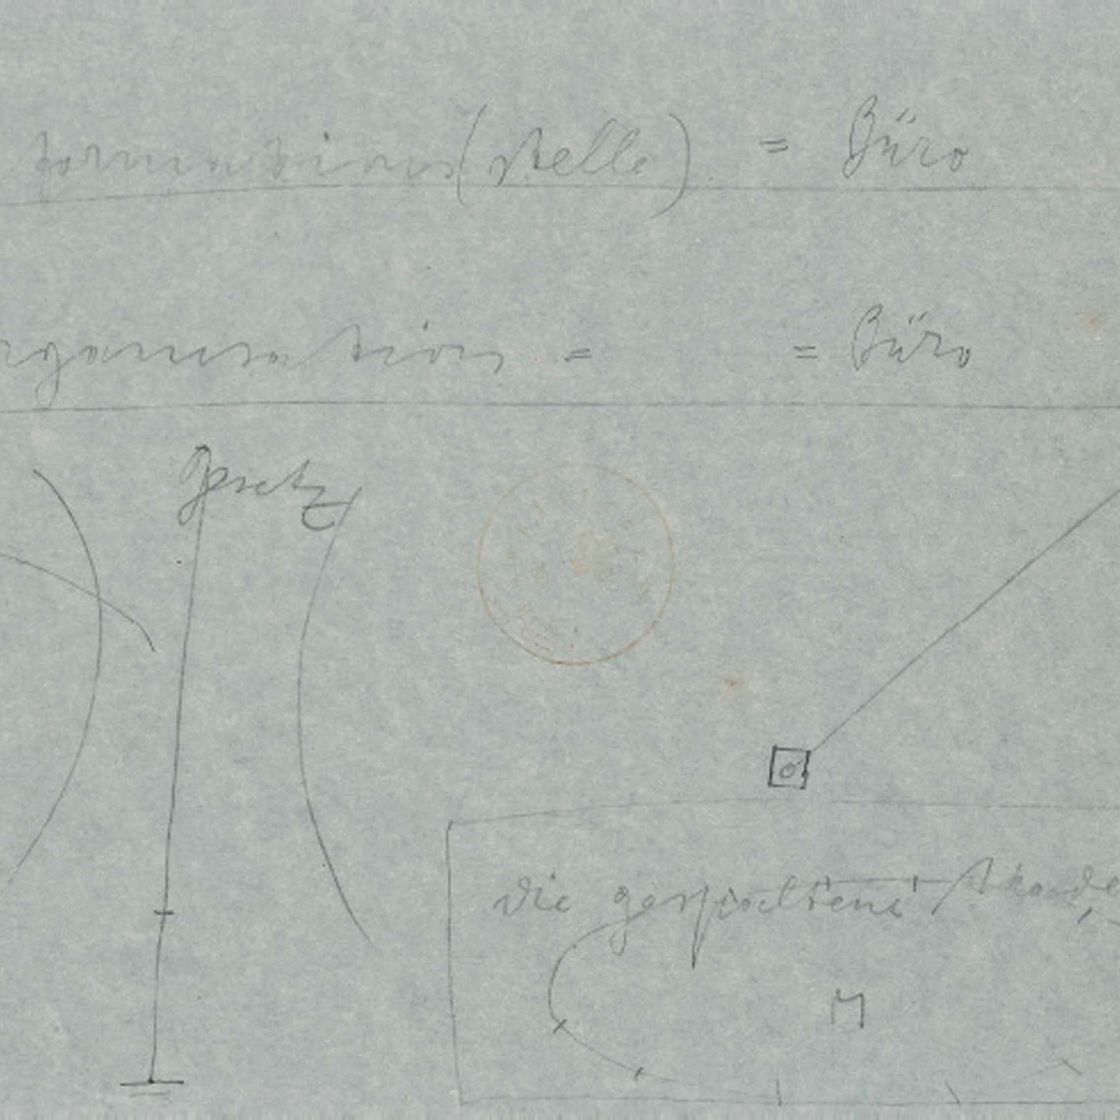 formations(stelle) = Büro
rganisations = = Büro
Gesetz
die gespaltene Akade
M